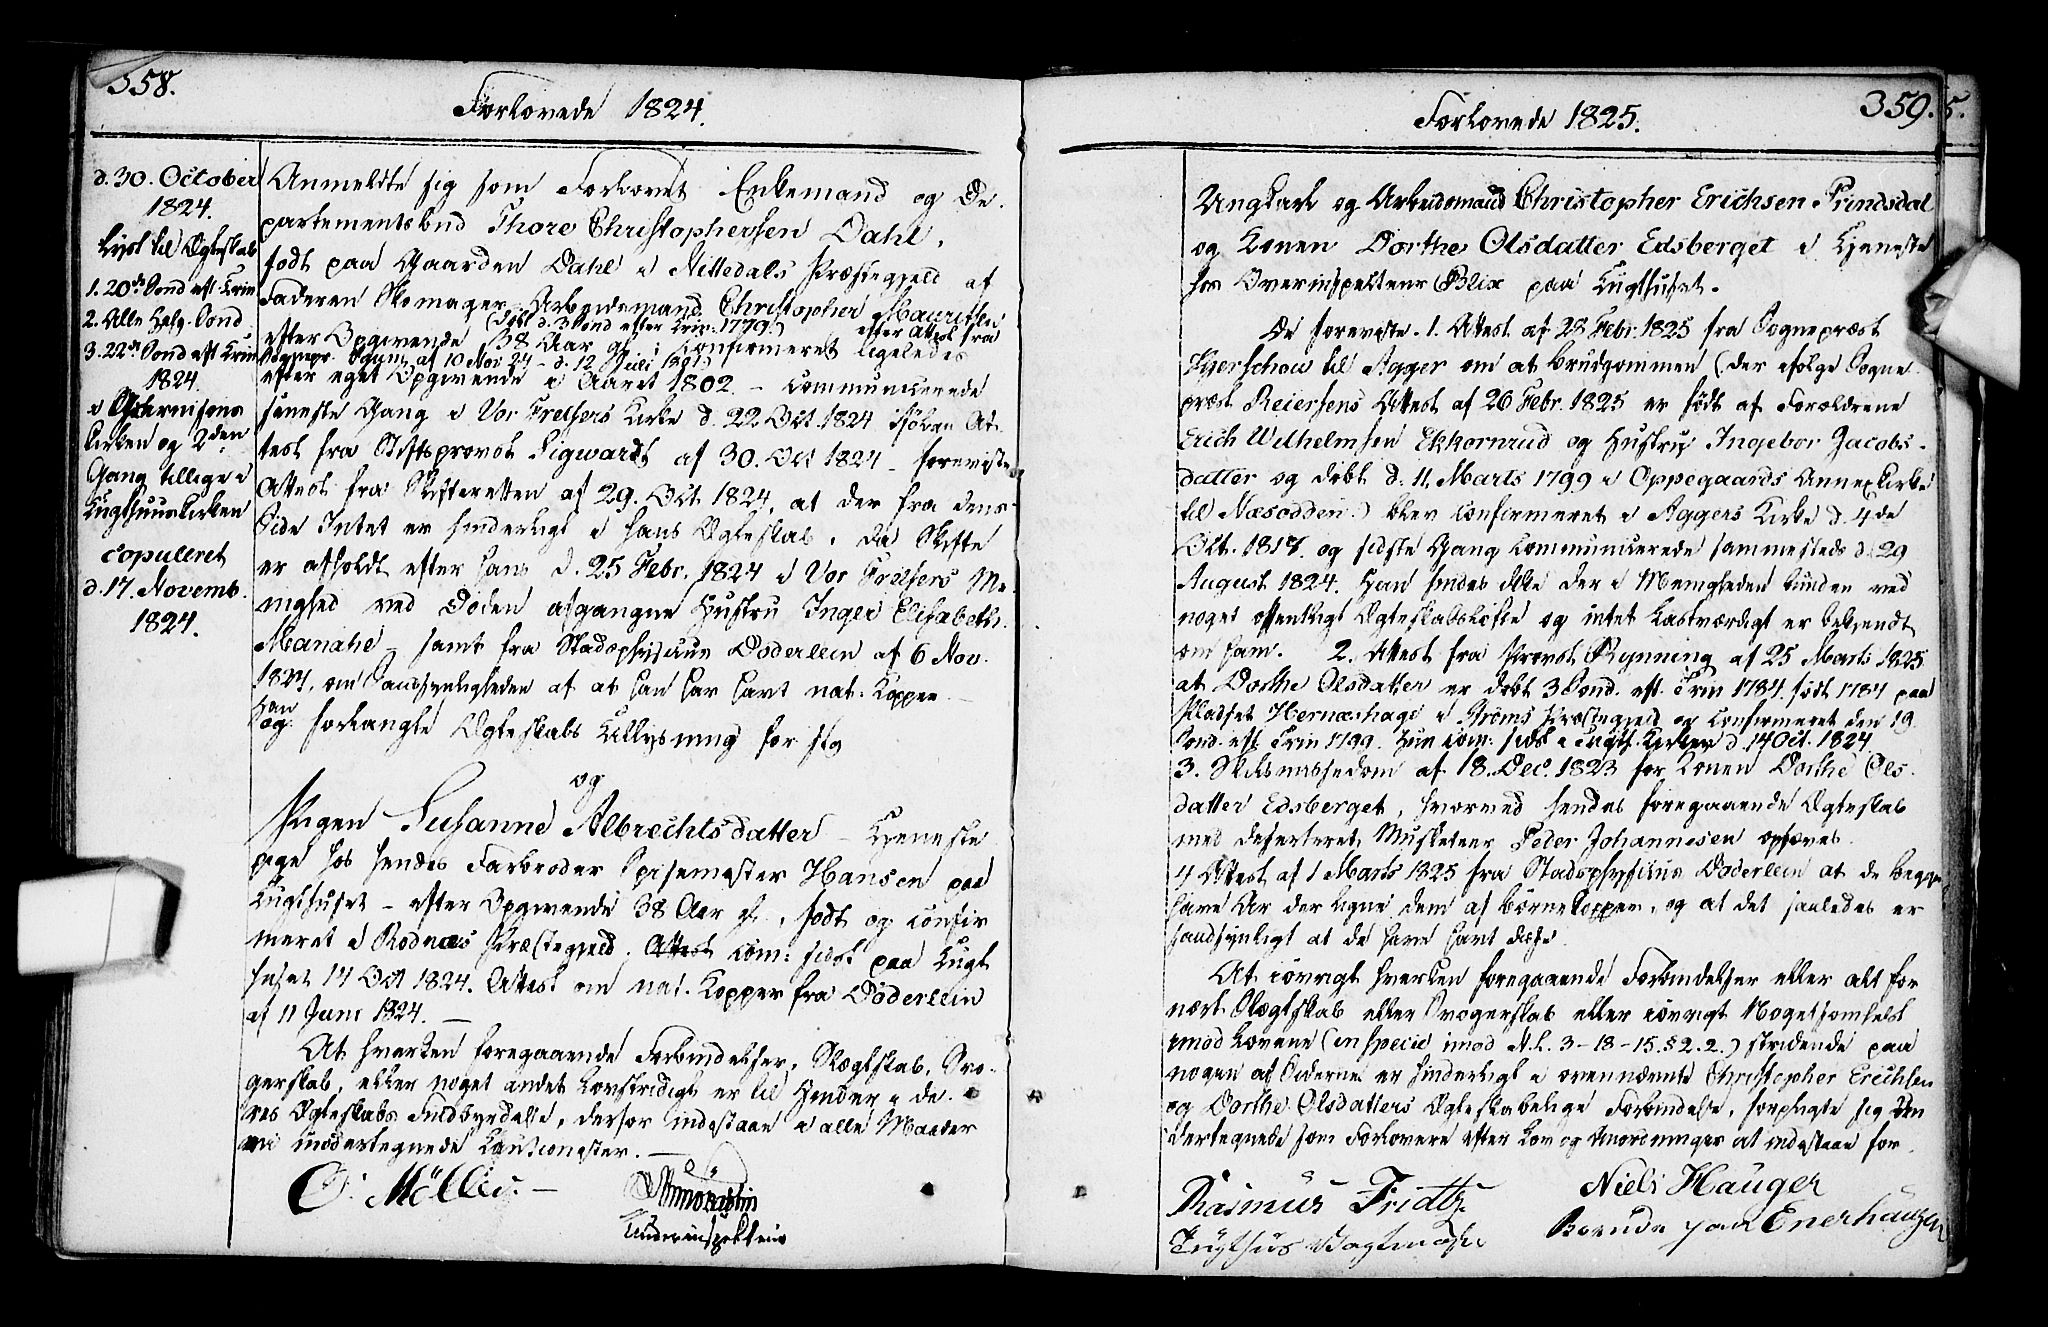 358.
Forlovede 1824.
d. 30. October
1824.
Lyst til Ægteskab
1. 20de Sond. eft. Trin
2. Alle Helg. Sond.
3. 22de Sond eft Trin
1824.
i Garnisons
Kirken og 2den
Gang tillige i
Tugthuuskirken
copuleret
d. 17. Novemb.
1824.
Anmeldte sig som Forlovet Enkemand og De-
partementsbud Thore Christophersen Dahl,
født paa Gaarden Dahl i Nittedals Præstegjeld af
Faderen Skomager, Arbeidsmand Christopher Mauritsen
(døbt d. 3 Sond efter Trin: 1779.) efter Attest fra
efter Opgivende 38 Aar gl: Confirmeret ligeledes
Sognepr. af 10 Nov 24 - d. 12 Juli 1801)
efter eget Opgivende i Aaret 1802 - communicerede
seneste Gang i Vor Frelsers Kirke d. 22 Oct. 1824 ifølge At-
test fra Stiftsprovst Sigwardt af 30. Oct 1824 - foreviste
Attest fra Skifteretten af 29. Oct. 1824, at der fra dens
Side Intet er hinderligt i hans Ægteskab, da Skifte
er afholdt efter hans d. 25 Febr. 1824 i Vor Frelsers Me-
nighed ved Døden afgangne Hustru Inger Elisabeth
Manahe - samt fra Stadsphysicus Døderlein af 6 Nov.
1824, om Sandsynligheden af at han har havt nat. Kopper -
Han
og forlangte Ægteskabs Tillysning for sig
og
Pigen Susanne Albrechtsdatter - Tjeneste
pige hos hendes Farbroder Spisemester Hansen paa
Tugthuset - efter Opgivende 38 Aar gl., født og confir
meret i Rodnæs Præstegjeld. Attest com: sidst paa Tugt
huset 14 Oct 1824. Attest om nat. Kopper fra Döderlein
af 11 Juni 1824. -
At hverken foregaaende Forbindelser, Slægtskab, Svo-
gerskab, eller noget andet Lovstridigt er til Hinder i de-
res Ægteskabs Fuldbyrdelse, derfor indestaae i alle Maader
vi undertegnede Cautionister. -
C: Möller. -
Underinspekteur
359.
5.
Forlovede 1825.
Ungkarl og Arbeidsmand Christopher Erichsen Prindsdal
og Konen Dorthe Olsdatter Edsberget i Tjeneste
hos Overinspekteur Blix paa Tugthuset.
De foreviste. 1. Attest af 28 Febr. 1825 fra Sognepræst
Kjerschow til Agger om at Brudgommen (der ifølge Sogne-
præst Reiersens Attest af 26 Febr. 1825 er født af Forældrene
Erich Wilhelmsen Ekkornrud og Hustru Ingebor Jacobs-
datter og døbt d. 11. Marts 1799 i Oppegaards Annexkirke
til Næsodden.) blev confirmeret i Aggers Kirke d. 4de
Oct. 1817. og sidste Gang communicerede sammesteds d. 29
August 1824. Han findes ikke der i Menigheden bunden ved
noget offentligt Ægteskabsløfte og intet lastværdigt er bekjendt
om ham. 2. Attest fra Provst Rynning af 25 Marts 1825
at Dorthe Olsdatter er døbt 3 Sond. eft. Trin 1784 født 1784 paa
Pladset Hernæshage i Grøms Præstegjeld og Confirmeret den 19
Sond. eft. Trin 1799. Hun com: sidst i Tugth. Kirken d. 14 Oct. 1824
3. Skilsmissedom af 18. Dec. 1823 for Konen Dorthe Ols-
datter Edsberget, hvorved hendes foregaaende Ægteskab
med deserteret Musketeer Peder Johannesen ophæves.
4 Attest af 1 Marts 1825 fra Stadsphysicus Döderlein at de begge
have Ar der ligne dem af Børnekopper, og at det saaledes er
sandsynligt at de have havt disse.
At iøvrigt hverken foregaaende Forbindelser eller alt for
nært Slægtskab eller Svogerskab eller iøvrigt Noget somhelst
imod Lovene (in specie imod N. L. 3-18-15. § 2. 2.) stridende paa
nogen af Siderne er hinderligt i ovennævnte Christopher Erichsen
og Dorthe Olsdatters Ægteskabelige Forbindelse, forpligte sig Un
dertegnede som Forlovere efter Lov og Anordninger at indestaae for.
Rasmus Fridtz
Tugthus Vagtmester
Niels Hauger
Boende paa Enerhaugen